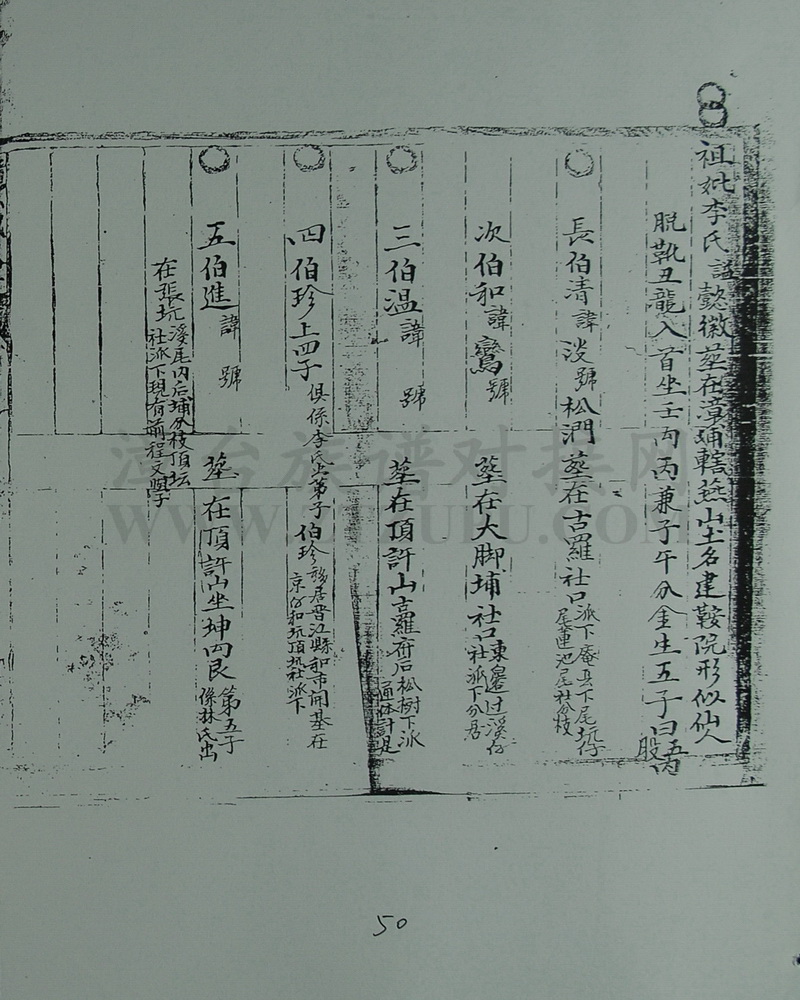 祖妣李氏諡懿徽葬在漳埔轄燕山土名建鞍院形似仙人
脫靴丑龍入首坐壬向丙兼子午分金生五子曰五
股
長伯清諱淡號松澗葬在古羅社口派下庵
尾蓮池尾社分枝
次伯和諱鸞號 葬在大脚埔社口東邊过溪仔
社派下分居
三伯温諱 號 葬在頂許山古羅 后松樹下派
四伯珍上四子俱係李氏出第子伯珍移居晋江縣和市開基在
社派下
五伯進諱 號 葬在頂許山坐坤向艮第五子
係林氏出
在張坑溪尾内后埔分枝頂坛
社派下現有前程文
漳台族谱对接网
50